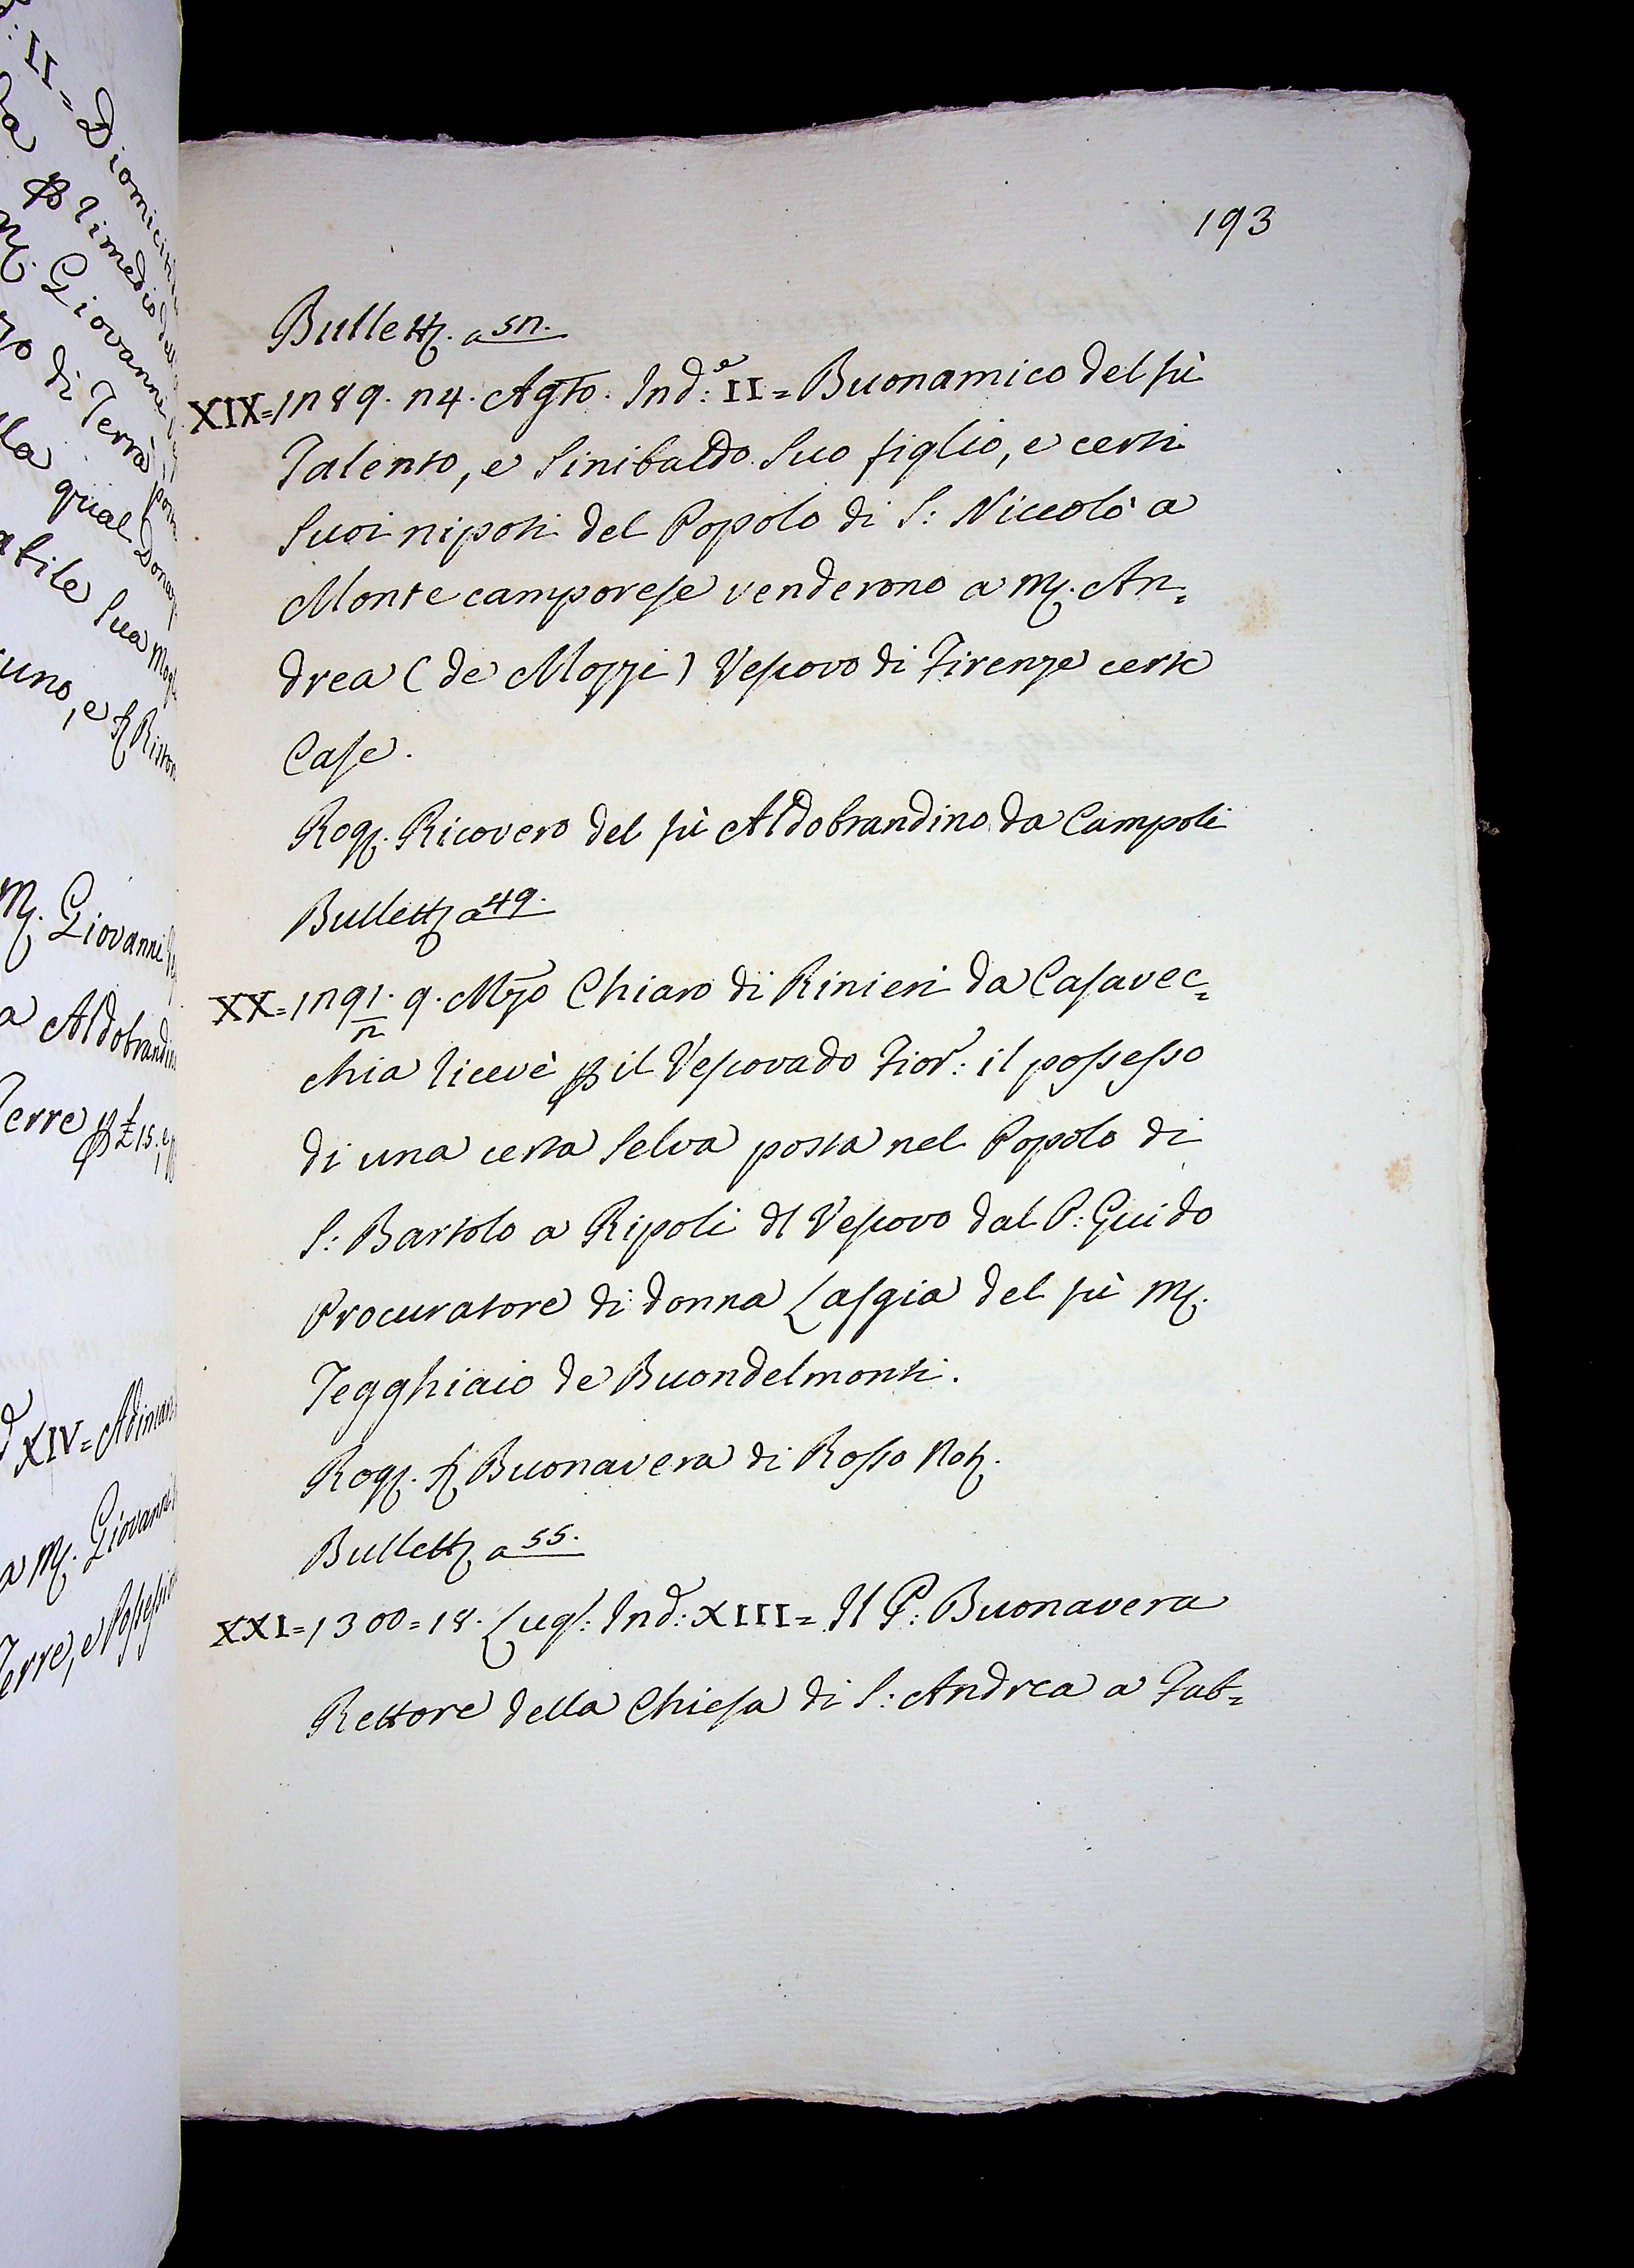 193
Bullett. a 52.
XIX = 1289. 24. Agto. Ind.e: II = Buonamico del fù
Talento, e Sinibaldo Suo figlio, e certi
Suoi nipoti del Popolo di S: Niccolò a
Monte camporese venderono a M. An=
drea (de Mozzi) Vescovo di Firenze certe
Case.
Rog. Ricovero del fù Aldobrandino da Campoli
Bullett a 49.
XX = 1291/2. 9. Mzo Chiaro di Rinieri da Casavec=
chia ricevè p il Vescovado Fior: il possesso
di una certa Selva posta nel Popolo di
S: Bartolo a Ripoli dl Vescovo dal P: Guido
Procuratore di donna Lasgia del fù M.
Tegghiaio de Buondelmonti.
Rog. S Buonavera di Rosso Not.
Bullett a 55.
XXI = 1300 = 18. Lugl: Ind: XIII = Il P: Buonavera
Rettore della Chiesa di S: Andrea a Fab=